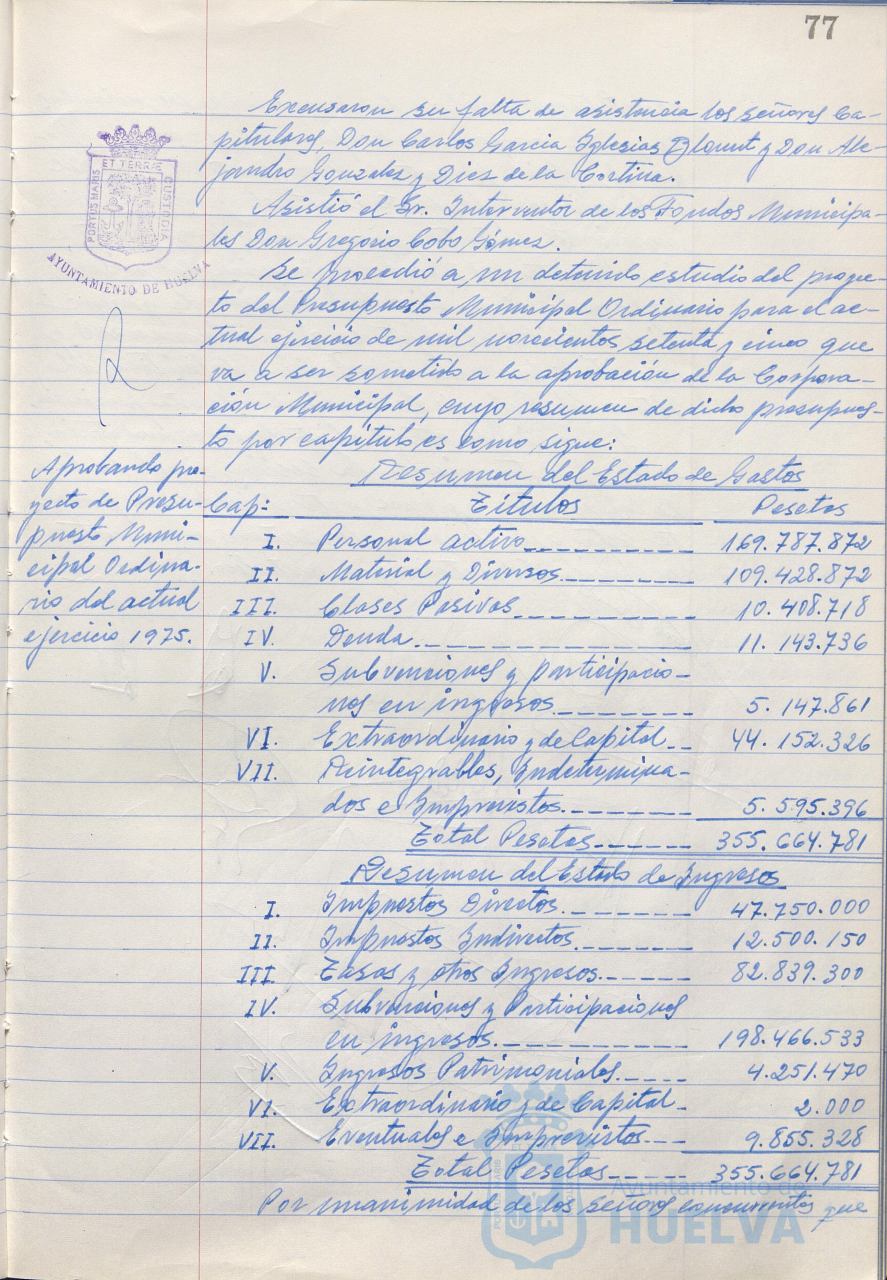 77
Excusaron su falta de asistencia los señores Ca-
pitulares, Don Carlos Garcia Iglesias Blount y Don Ale-
jandro Gonzalez y Diez de la Cortina.
Asistió el Sr. Interventor de los Fondos Municipa-
les Don Gregorio Cobo Gómez.
Se procedió a un detenido estudio del proyec-
to del Presupuesto Municipal Ordinario para el ac-
tual ejercicio de mil novecientos setenta y cinco que
va a ser sometido a la aprobación de la Corpora-
ción Municipal, cuyo resumen de dicho presupues-
to por capítulo es como sigue:
PORTUS MARIS ET TERRE CUSTODIA
AYUNTAMIENTO DE HUELVA
Aprobando pro-
yecto de Presu-
puesto Muni-
cipal Ordina-
rio del actual
ejercicio 1975.
Resumen del Estado de Gastos
Cap: Títulos Pesetas
I. Personal activo 169.787.872
II. Material y Diversos 109.428.872
III. Clases Pasivas 10.408.718
IV. Deuda 11.143.736
V. Subvenciones y participacio-
nes en ingresos 5.147.861
VI. Extraordinario y de Capital 44.152.326
VII. Reintegrables, Indetermina-
dos e Imprevistos 5.595.396
Total Pesetas 355.664.781
Resumen del Estado de Ingresos
I. Impuestos Directos 47.750.000
II. Impuestos Indirectos 12.500.150
III Tasas y otros Ingresos 82.839.300
IV. Subvenciones y Participaciones
en ingresos 198.466.533
V. Ingresos Patrimoniales 4.251.470
VI. Extraordinario y de Capital 2.000
VII. Eventuales e Imprevistos 9.855.328
Total Pesetas 355.664.781
Por unanimidad de los señores concurrentes que
Ayuntamiento de
HUELVA